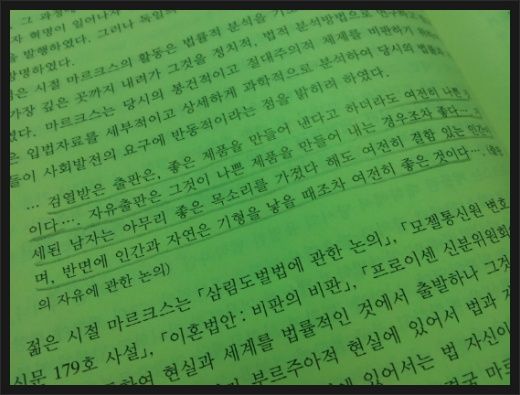 그 과정에
자 혁명이 일어나자
을 발행하였다. 그러나 독일의
망명하였다.
은 시절 마르크스의 활동은 법률적 분석을 기
가장 깊은 곳까지 내려가 그것을 정치적, 법적 분석방법으로 연구하
였다. 마르크스는 당시의 봉건적이고 절대주의적 제제를 비판하기
은 입법자료를 세부적이고 상세하게 과학적으로 분석하여 당시의 법률
들이 사회발전의 요구에 반동적이라는 점을 밝히려 하였다.
… 검열받은 출판은, 좋은 제품을 만들어 낸다고 하더라도 여전히 나쁜
이다…. 자유출판은 그것이 나쁜 제품을 만들어 내는 경우조차 좋다….
세된 남자는 아무리 좋은 목소리를 가졌다 해도 여전히 결함 있는 인간이
며, 반면에 인간과 자연은 기형을 낳을 때조차 여전히 좋은 것이다…. (출판
의 자유에 관한 논의)
젊은 시절 마르크스는 「삼림도벌법에 관한 논의」, 「모젤통신원 변호
신문 179호 사설」, 「이혼법안 : 비판의 비판」, 「프로이센 신분위원회
하여 현실과 세계를 법률적인 것에서 출발하나 그것
부르주아적 현실에 있어서 법과
에 있어서는 법 자신이
결국 마르